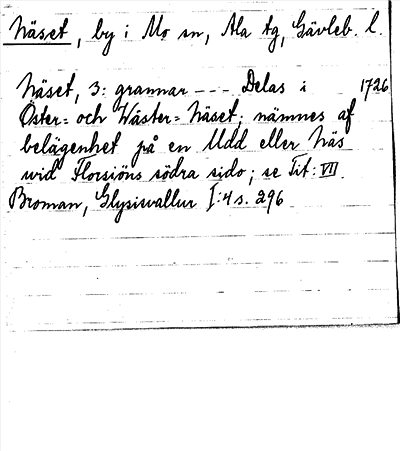 Näset, by i Mo sn, Ala tg, Gävleb. l.
Näset, 3: grannar --- Delas i 1726
Öster= och Wäster= Näset; nämnes af
belägenhet på en Udd eller Näs
wid Florsiöns södra sido; se Tit: VII.
Broman, Glysisvallur I:4 s. 296